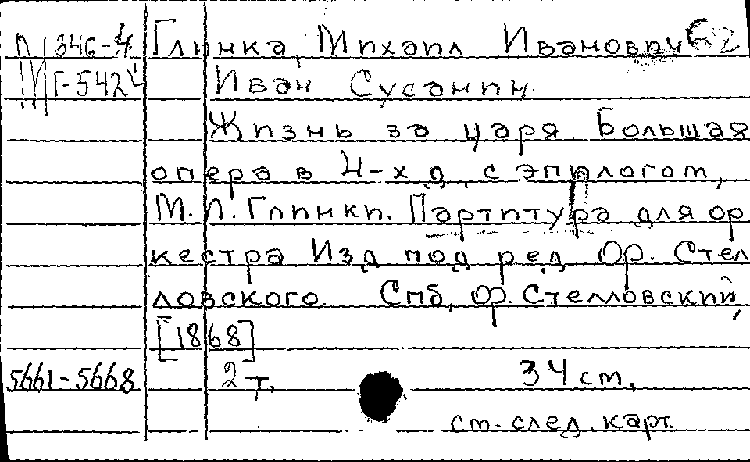 346-4 Глинка, Михаил Иванович
Г-5424 Иван Сусанин.
Жизнь за царя. Большая
опера в 4-х д. с эпилогом,
М.И. Глинки. Партитура для ор
кестра Изд. под ред. Ѳр. Стел
ловского. Спб, Ѳр. Стелловский,
[1868]
5661-5668 2 т. 34 см.
см. след. карт.